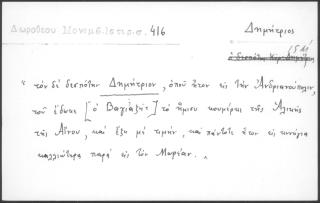 Δωροθέου Μονεμβ. Ιστορ. σ. 416
Δημήτριος
(510)
ὁ δεσπότης Κύρ Δημήτρης
"τὸν δὲ δεσπότην Δημήτριον, ὁποῦ ἦτον εἰς τὴν Ἀνδριανούπολιν,
τοῦ ἔδωκε [ὁ Βαγιαζήτ] τὸ ἥμισυ κουμέρκι τῆς Ἁλικῆς
τῆς Αἴνου, καὶ ἔζη μὲ τιμήν, καὶ πάντοτε ἦτον εἰς κυνήγια
καλλιώτερα παρὰ εἰς τὸν Μορέαν.